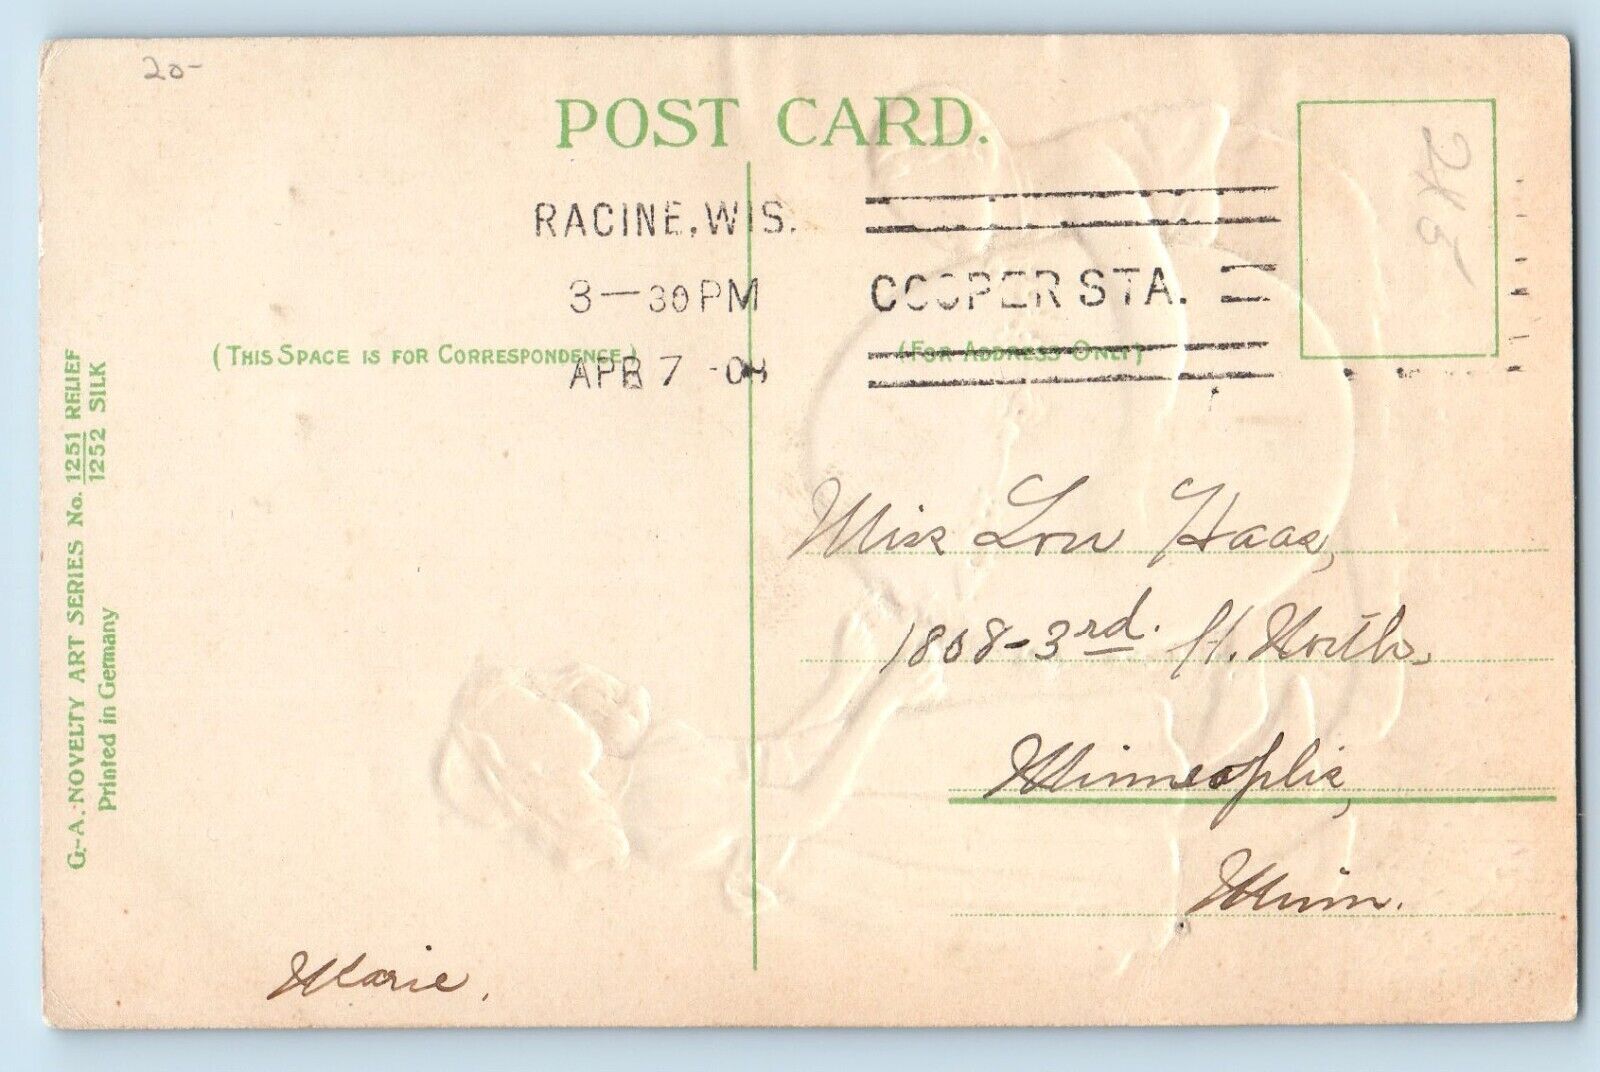 20-
POST CARD.
RACINE, WIS.
3-30 PM
APR 7 -08
COOPER STA.
245
(THIS SPACE IS FOR CORRESPONDENCE.)
(FOR ADDRESS ONLY)
G.-A. NOVELTY ART SERIES No. 1251 RELIEF
1252 SILK
Printed in Germany
Miss Lou Haas,
1808-3rd. St. North,
Minneaplis,
Minn.
Marie.